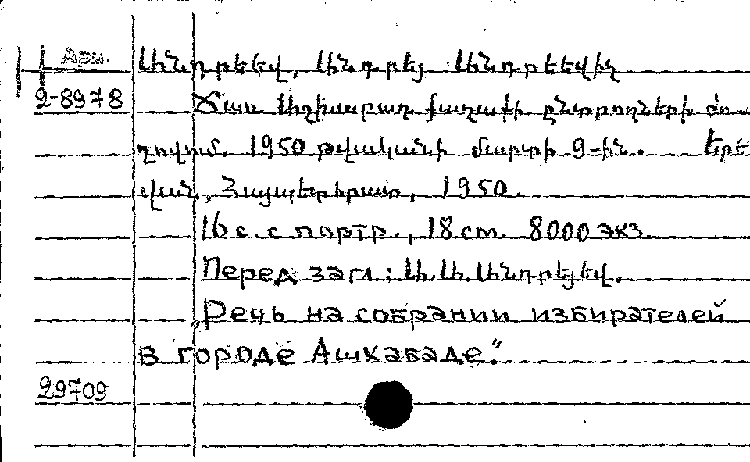 Арм. Անդրեեվ, Անդրեյ Անդրեեվիչ
2-8978 Ճառ Աշխաբադ քաղաքի ընտրողների ժո-
ղովում, 1950 թվականի մարտի 9-ին. Երե-
վան, Հայպետհրատ, 1950.
16 с. с портр., 18 см. 8000 экз.
Перед загл: Ա.Ա.Անդրեյեվ.
„Речь на собрании избирателей
в городе Ашхабаде."
29709